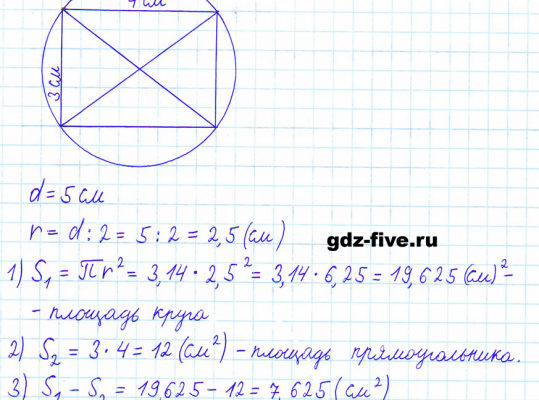 4 см
3 см
d = 5 см
r = d : 2 = 5 : 2 = 2,5 (см)
gdz-five.ru
1) S₁ = πr² = 3,14 · 2,5² = 3,14 · 6,25 = 19,625 (см)² -
- площадь круга
2) S₂ = 3 · 4 = 12 (см²) - площадь прямоугольника.
3) S₁ - S₂ = 19,625 - 12 = 7,625 (см²)